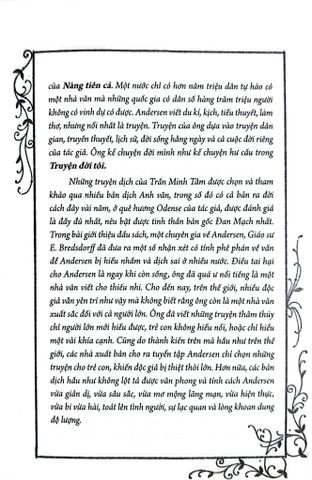 của Nàng tiên cá. Một nước chỉ có hơn năm triệu dân tự hào có
một nhà văn mà những quốc gia có dân số hàng trăm triệu người
không có vinh dự có được. Andersen viết du kí, kịch, tiểu thuyết, làm
thơ, nhưng nổi nhất là truyện. Truyện của ông dựa vào truyện dân
gian, truyền thuyết, lịch sử, đời sống hằng ngày và cả cuộc đời riêng
của tác giả. Ông kể chuyện đời mình như kể chuyện hư cấu trong
Truyện đời tôi.
Những truyện dịch của Trần Minh Tâm được chọn và tham
khảo qua nhiều bản dịch Anh văn, trong số đó có cả bản ra đời
cách đây vài năm, ở quê hương Odense của tác giả, được đánh giá
là đầy đủ nhất, nêu bật được tinh thần bản gốc Đan Mạch nhất.
Trong bài giới thiệu đầu sách, một chuyên gia về Andersen, Giáo sư
E. Bredsdorff đã đưa ra một số nhận xét có tính phê phán về vấn
đề Andersen bị hiểu nhầm và dịch sai ở nhiều nước. Điều tai hại
cho Andersen là ngay khi còn sống, ông đã quá ư nổi tiếng là một
nhà văn viết cho thiếu nhi. Cho đến nay, trên thế giới, nhiều độc
giả vẫn yên trí như vậy mà không biết rằng ông còn là một nhà văn
xuất sắc đối với cả người lớn. Ông đã viết những truyện thâm thúy
chỉ người lớn mới hiểu được, trẻ con không hiểu nổi, hoặc chỉ hiểu
một vài khía cạnh. Cũng do thành kiến trên mà hầu như trên thế
giới, các nhà xuất bản cho ra tuyển tập Andersen chỉ chọn những
truyện cho trẻ con, khiến độc giả bị thiệt thòi lớn. Hơn nữa, các bản
dịch hầu như không lột tả được văn phong và tính cách Andersen
vừa giản dị, vừa sâu sắc, vừa mơ mộng lãng mạn, vừa hiện thực,
vừa bi vừa hài, toát lên tình người, sự lạc quan và lòng khoan dung
độ lượng.